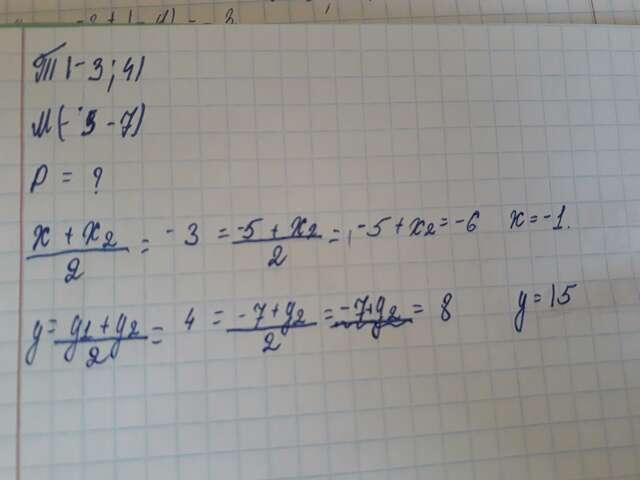 -2+(-4) = -3
T(-3; 4)
M(-5 -7)
P = ?
x + x2 / 2 = -3 = -5 + x2 / 2 = , -5 + x2 = -6 x = -1.
y = y1 + y2 / 2 = 4 = -7 + y2 / 2 = -7 + y2 = 8 y = 15